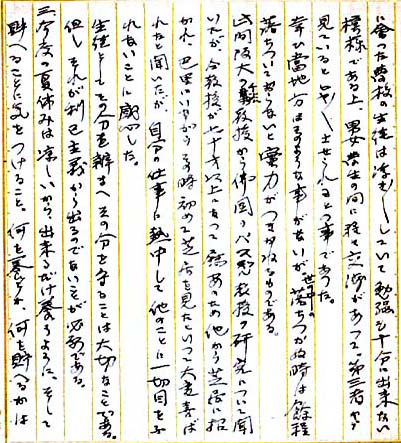 に会った貴校の生徒は浮々していて勉強も十分に出来ない
模様である上、男女学生の間に種々交渉があって第三者から
見ていると はら〳〵させられるとの事であった。
幸ひ当地方はそのような事がないが世の中の落ちつかぬ時は余程
落ちついて居らないと実力がつきかねるものである。
此間阪大の 教授から佛国のパスツール教授の研究について聞
いたが、今教授が七十才以上になって 他から芝居に招
かれ、巴里にいながらその時初めて芝居を見たといって大変喜ば
れたと聞いたが、自分の仕事に熱中して他のことに一切目をふ
れないことに感心した。
生徒としての分を辨え、その分を守ることは大切なことである。
但しそれが利己主義から出るのでない が必要である。
三、今度の夏休みは涼しいから、出来るだけ養うように、そして
貯へることに気をつけること。何を養うか、何を貯へるかは